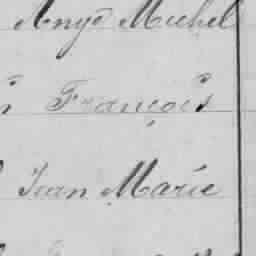 Ange Michel
François
Jean Marie